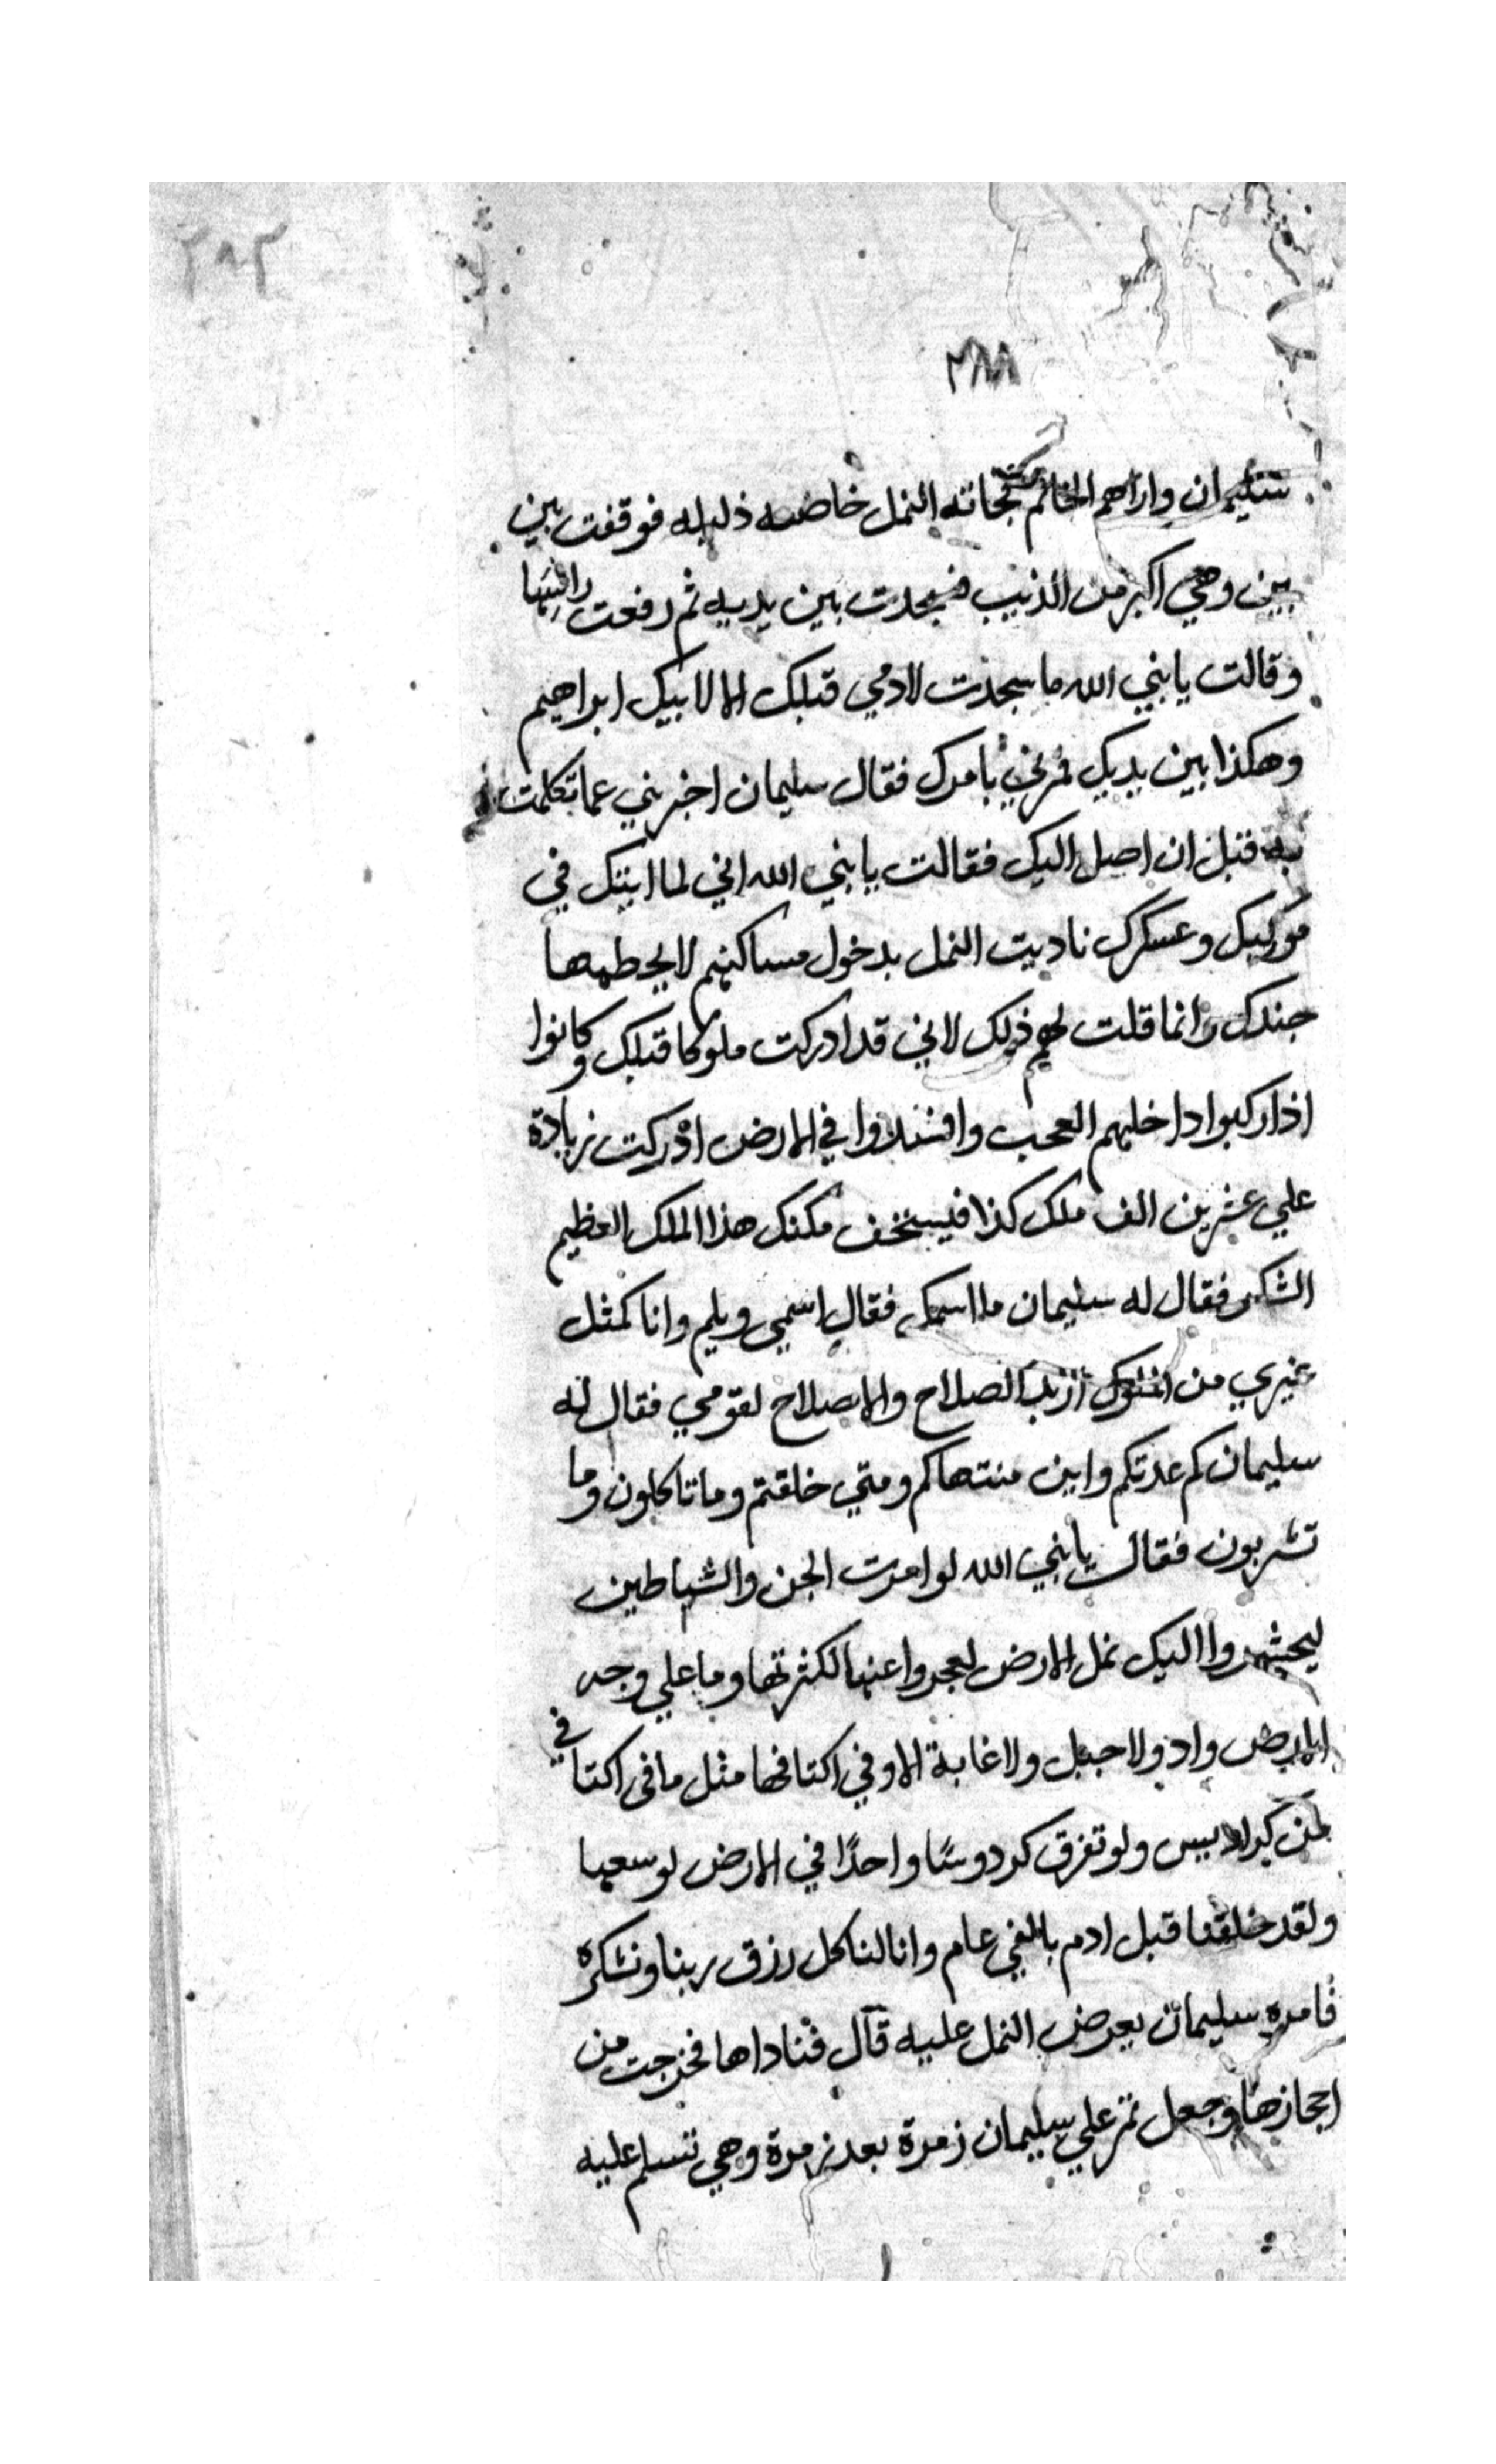 ٢٨٣
٢٨٨
سليمان واراهم الخاتم فجاته النمل خاضعه ذليله فوقفت بين
يين وهي اكبر من الذيب فسجدت بين يديه ثم رفعت راسها
وقالت يا نبي الله ما سجدت لادمي قبلك الا لابيك ابراهيم
وهكذا بين يديك فمرني بامرك فقال سليمان اخبريني عما تكلمت
به قبل ان اصل اليك فقالت يا نبي الله اني لما ايتك في
موكبك وعسكرك ناديت النمل بدخول مساكنهم لا يحطمها
جندك وانما قلت لهم ذلك لاني قد ادركت ملوكا قبلك وكانوا
اذا ركبوا داخلهم العجب وافسدوا في الارض ادركت زيادة
علي عشرين الف ملك كذا فيستخف مكنك هذا الملك العظيم
الشكر فقال له سليمان ما اسمك فقال اسمي ويلم وانا كمثل
غيري من الملوك ازيد الصلاح والاصلاح لقومي فقال له
سليمان كم عدتكم واين منتهاكم ومتي خلقتم وما تاكلون وما
تشربون فقال يا نبي الله لو امرت الجن والشياطين
ليحشروا اليك نمل الارض لعجروا عنها لكثرتها وما علي وجه
الارض واد ولا جبل ولا غابة الا وفي اكتافها مثل ما في اكتا في
من كراديس ولو تفرق كردوسًا واحدًا في الارض لوسعها
ولقد خلقنا قبل ادم بالفي عام وانا لناكل رزق ربنا ونشكره
فامره سليمان بعرض النمل عليه قال فناداها فخرجت من
احجازها وجعل تمر علي سليمان زمرة بعد زمرة وهي تسلم عليه